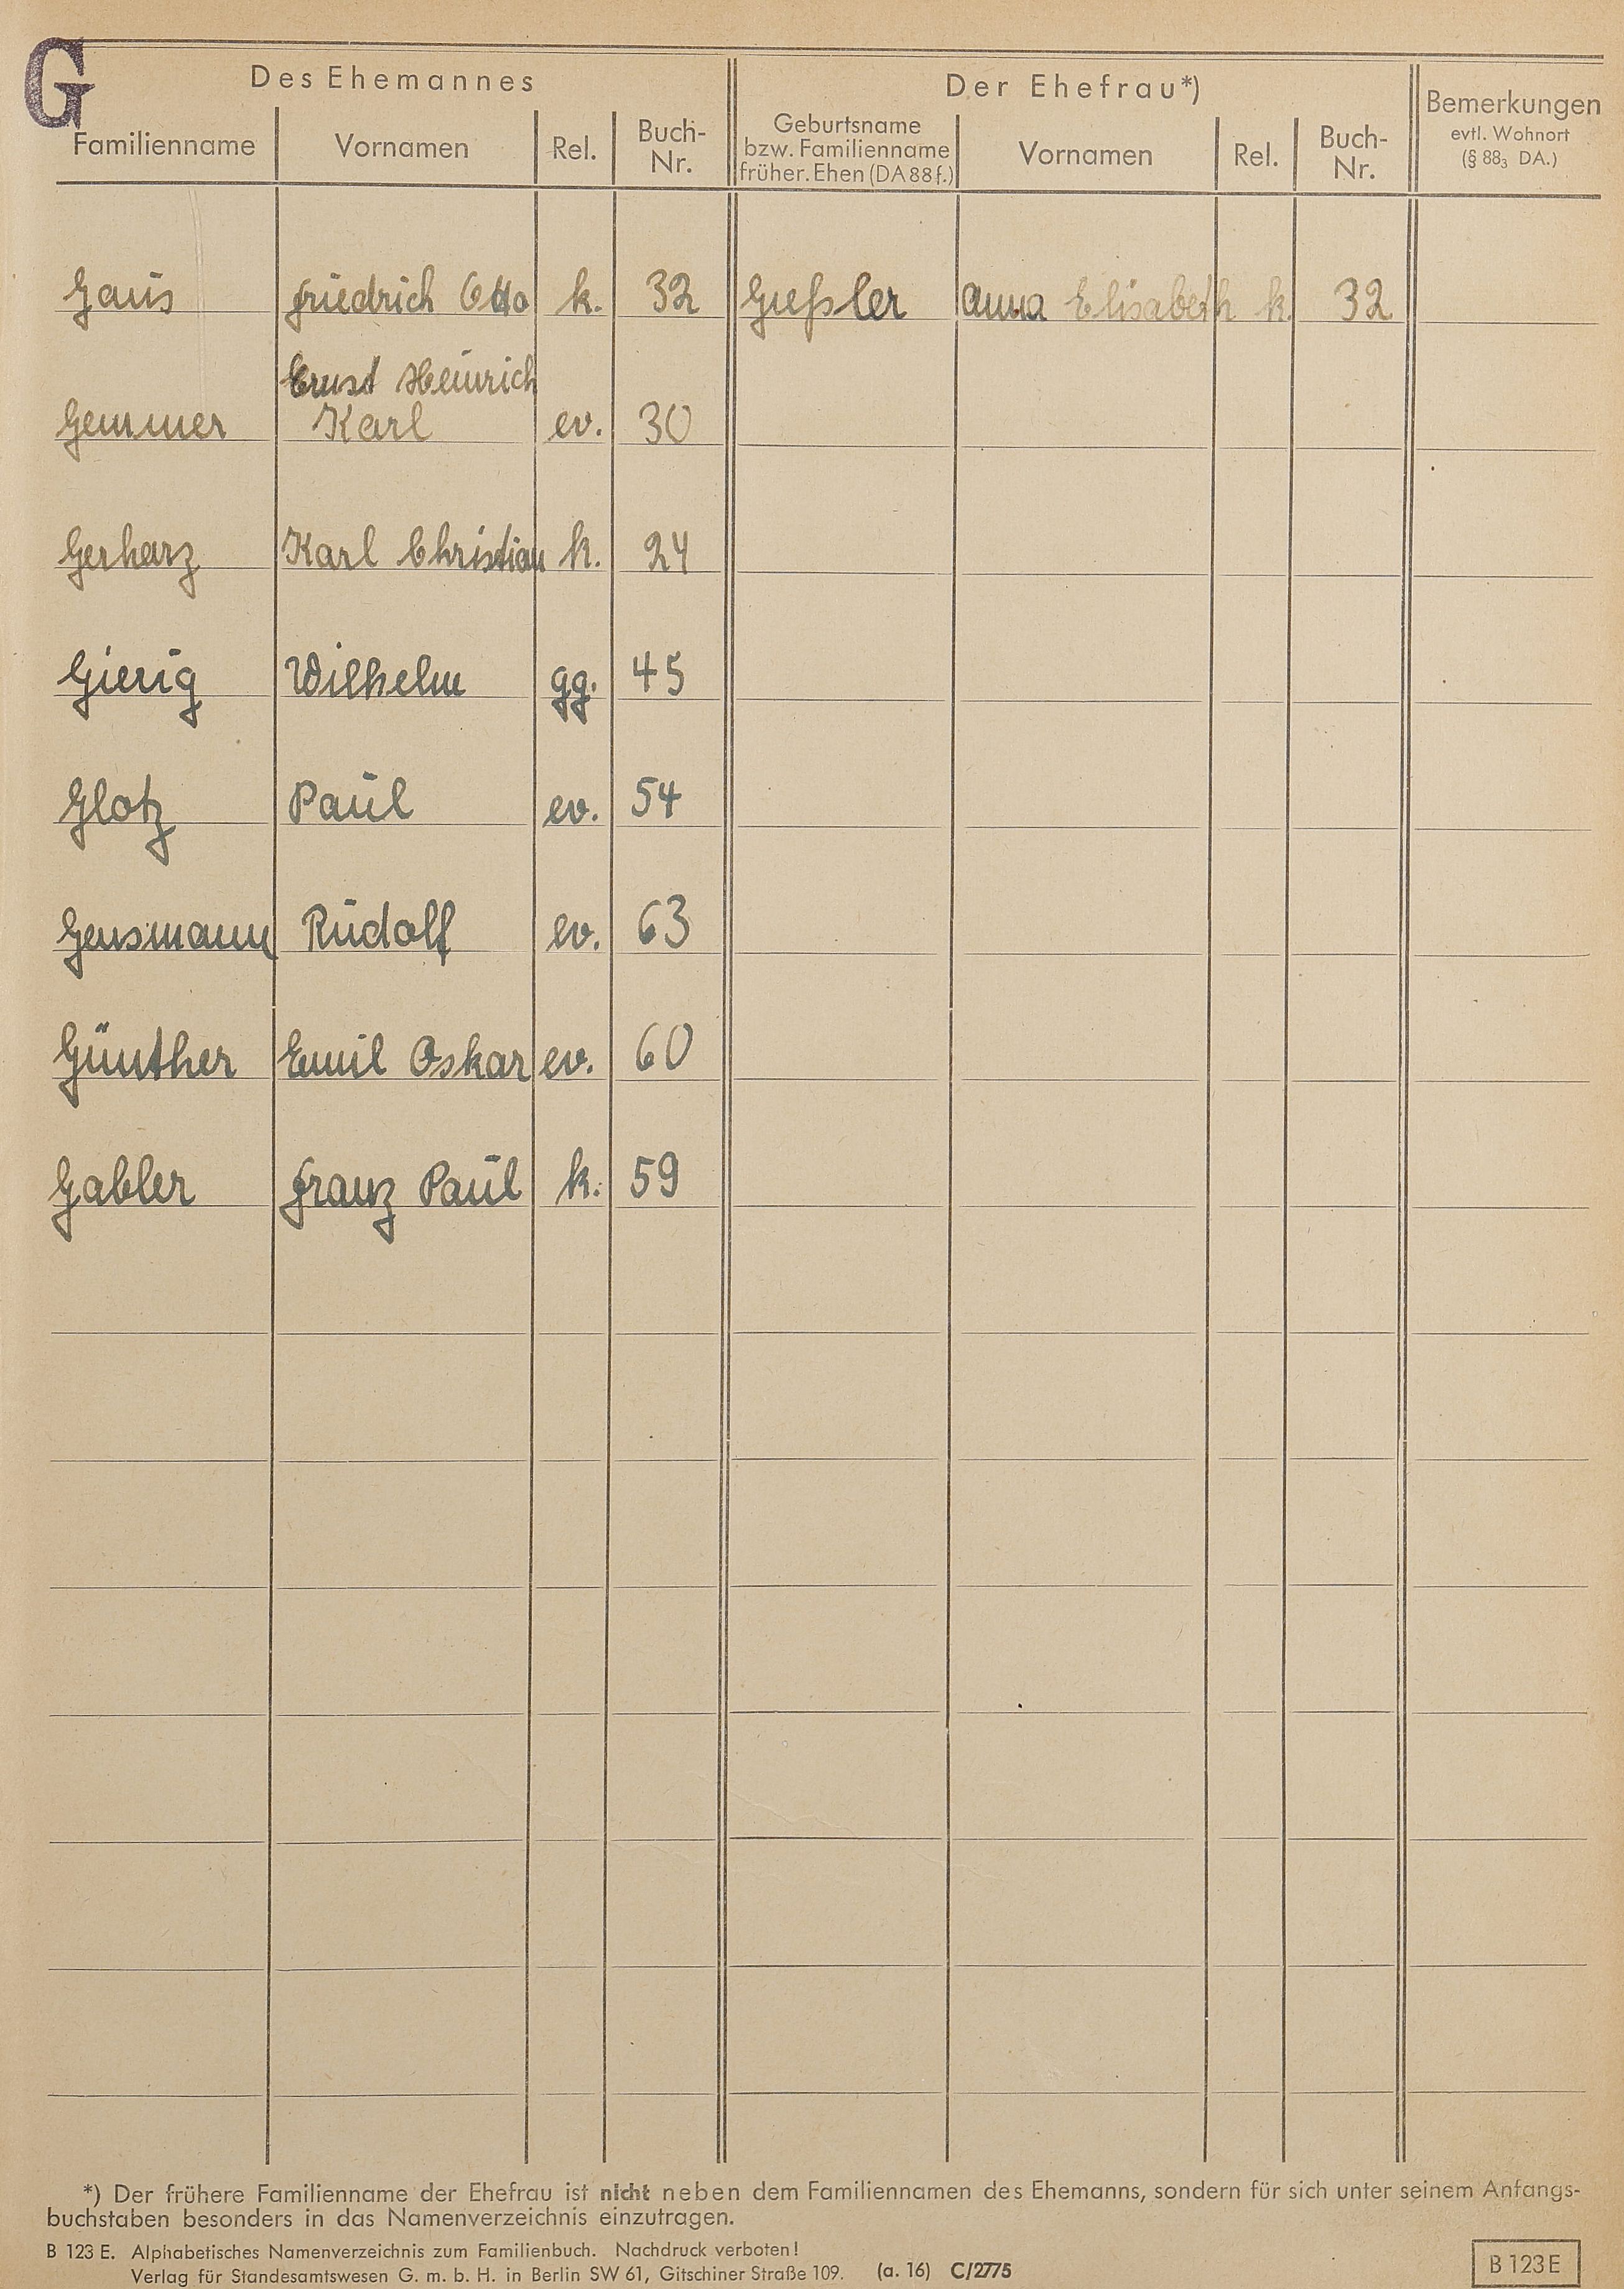 G
Des Ehemannes Der Ehefrau*) Bemerkungen evtl. Wohnort (§ 88₃ DA.)
Familienname Vornamen Rel. Buch-Nr. Geburtsname bzw. Familienname früher. Ehen (DA 88 f.) Vornamen Rel. Buch-Nr.
Gaus Friedrich Otto k. 32 Gießler Anna Elisabeth k. 32
Ernst Heinrich
Gemmer Karl ev. 30
Gerharz Karl Christian k. 24
Gierig Wilhelm gg. 45
Glotz Paul ev. 54
Gensmann Rudolf ev. 63
Günther Emil Oskar ev. 60
Gabler Franz Paul k. 59
*) Der frühere Familienname der Ehefrau ist nicht neben dem Familiennamen des Ehemanns, sondern für sich unter seinem Anfangs-
buchstaben besonders in das Namenverzeichnis einzutragen.
B 123 E. Alphabetisches Namenverzeichnis zum Familienbuch. Nachdruck verboten!
Verlag für Standesamtswesen G. m. b. H. in Berlin SW 61, Gitschiner Straße 109. (a. 16) C/2775
B 123 E